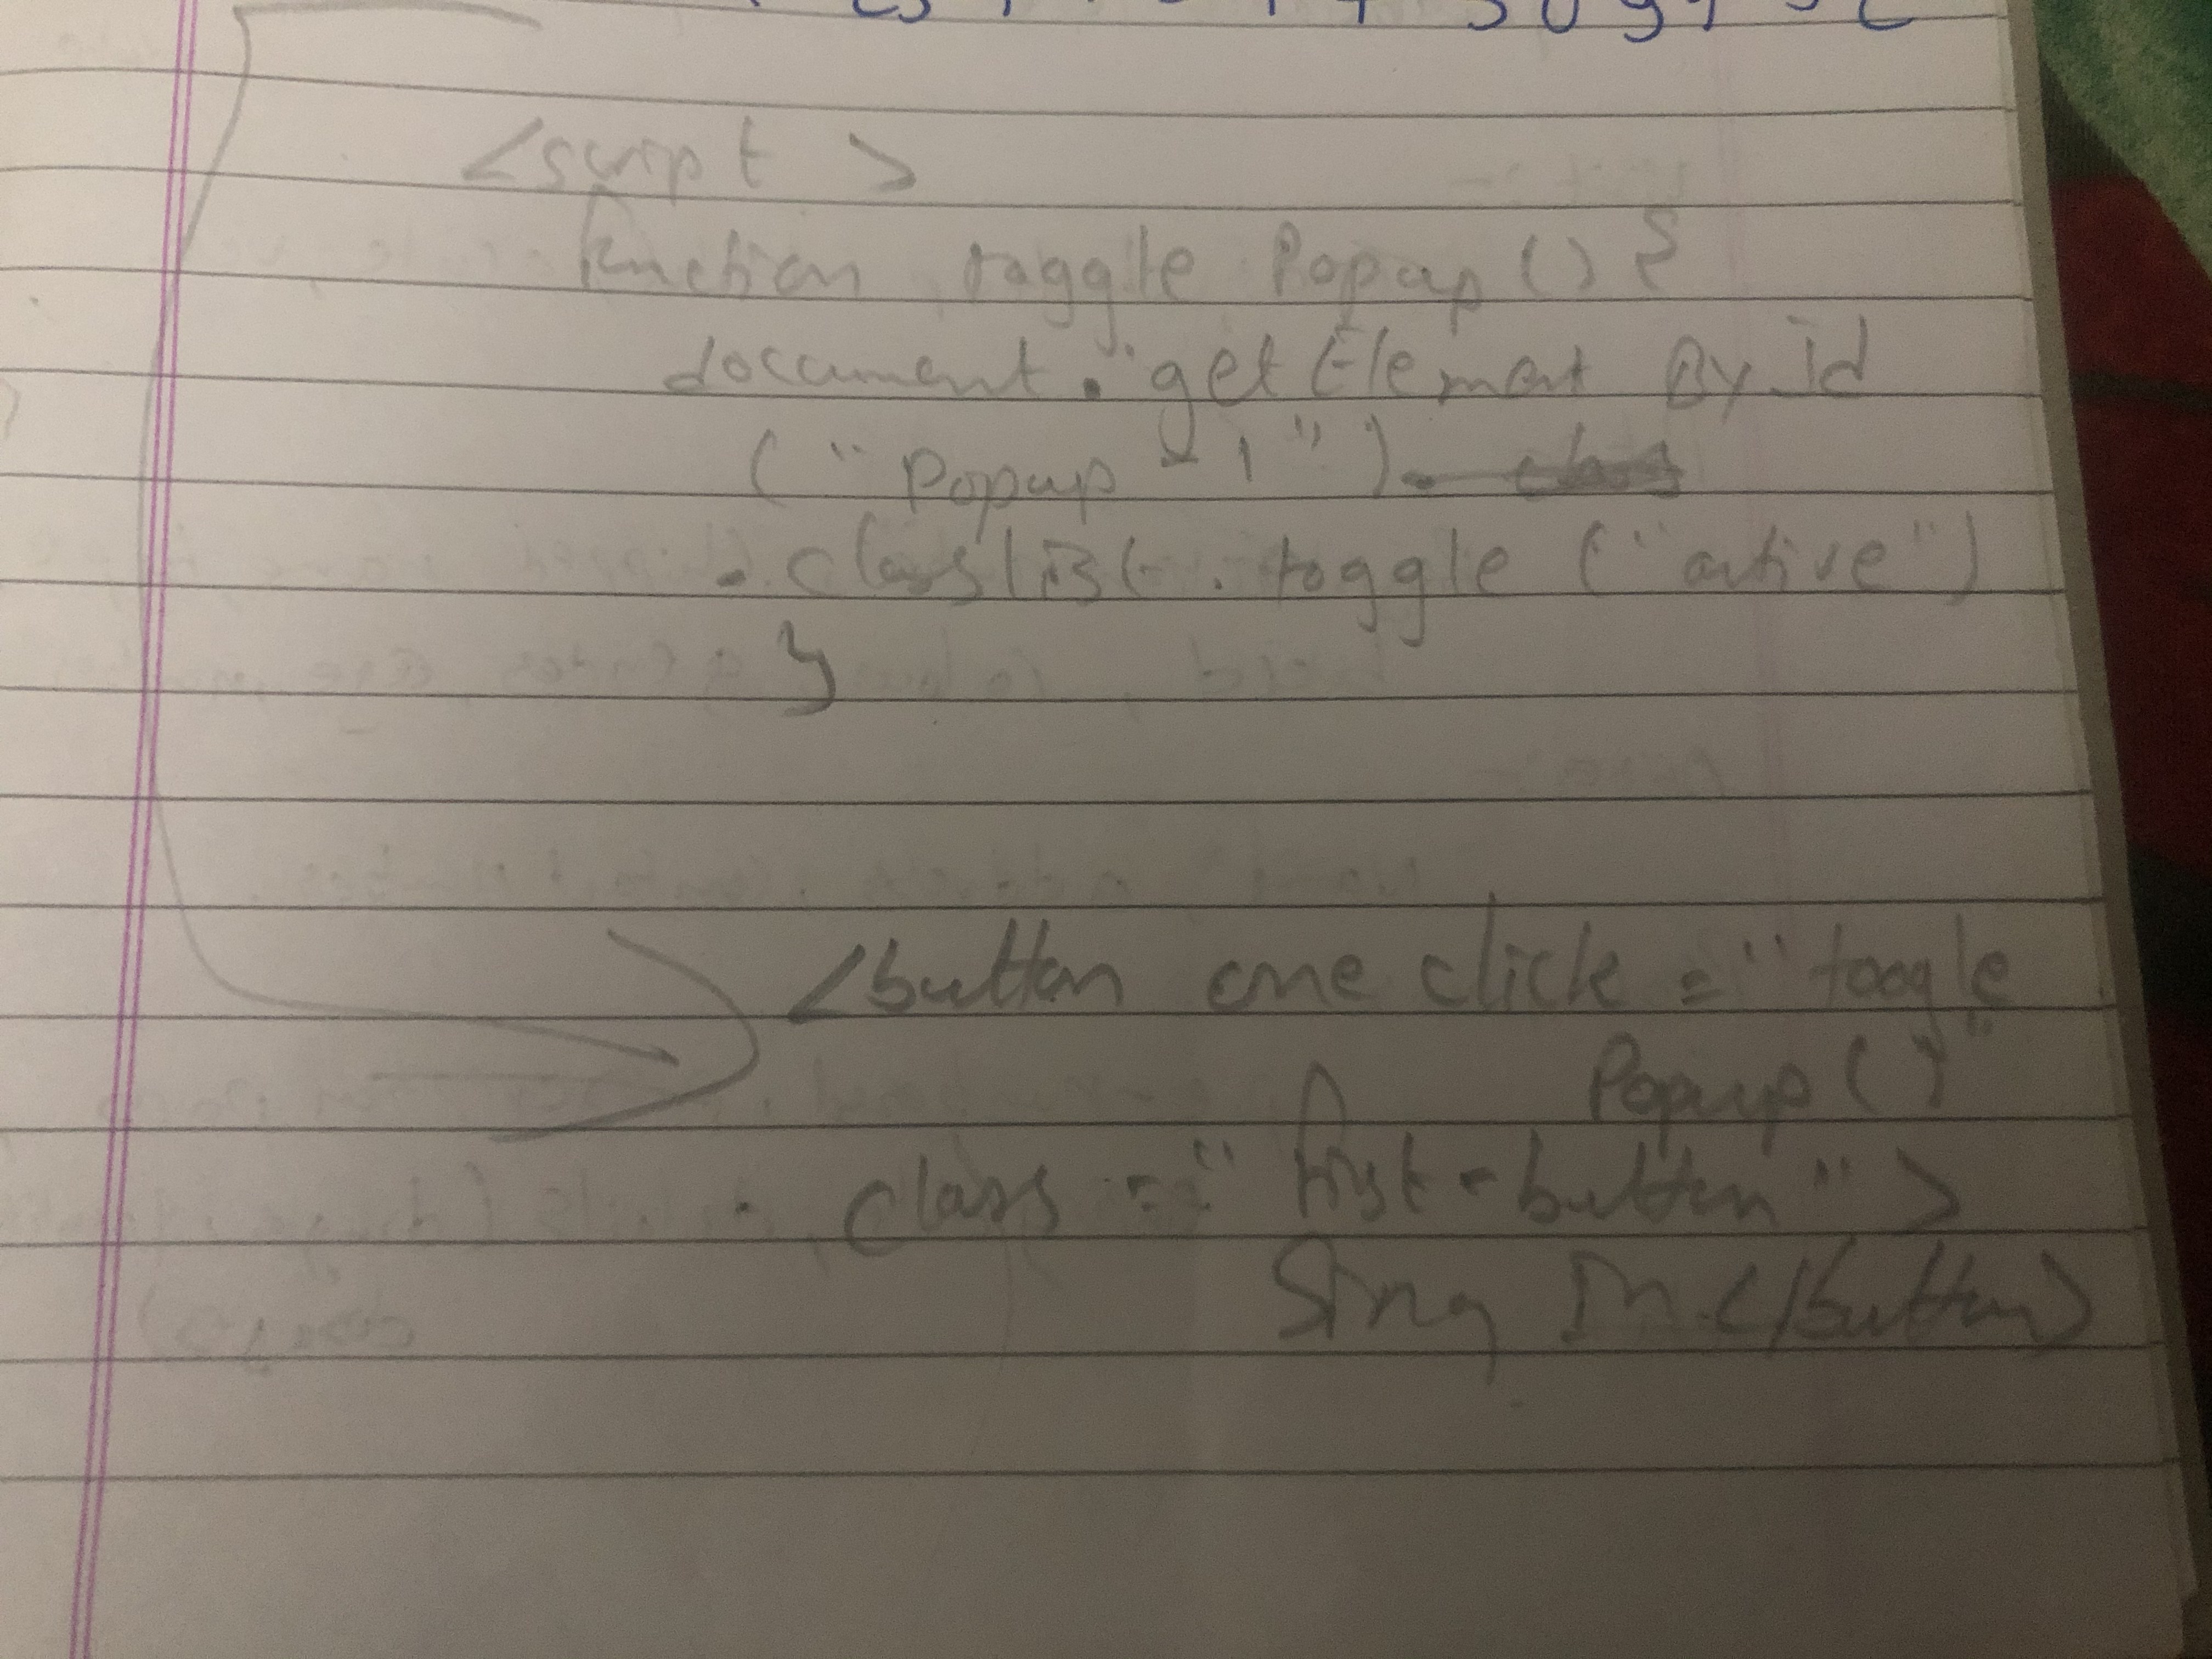 <script>
function toggle Popup () {
document.getElement By id
("Popup y 1").
.classlist.toggle ("active")
}
<button one click = "toogle
Popup ()"
class = "first-button">
Sign In </button>